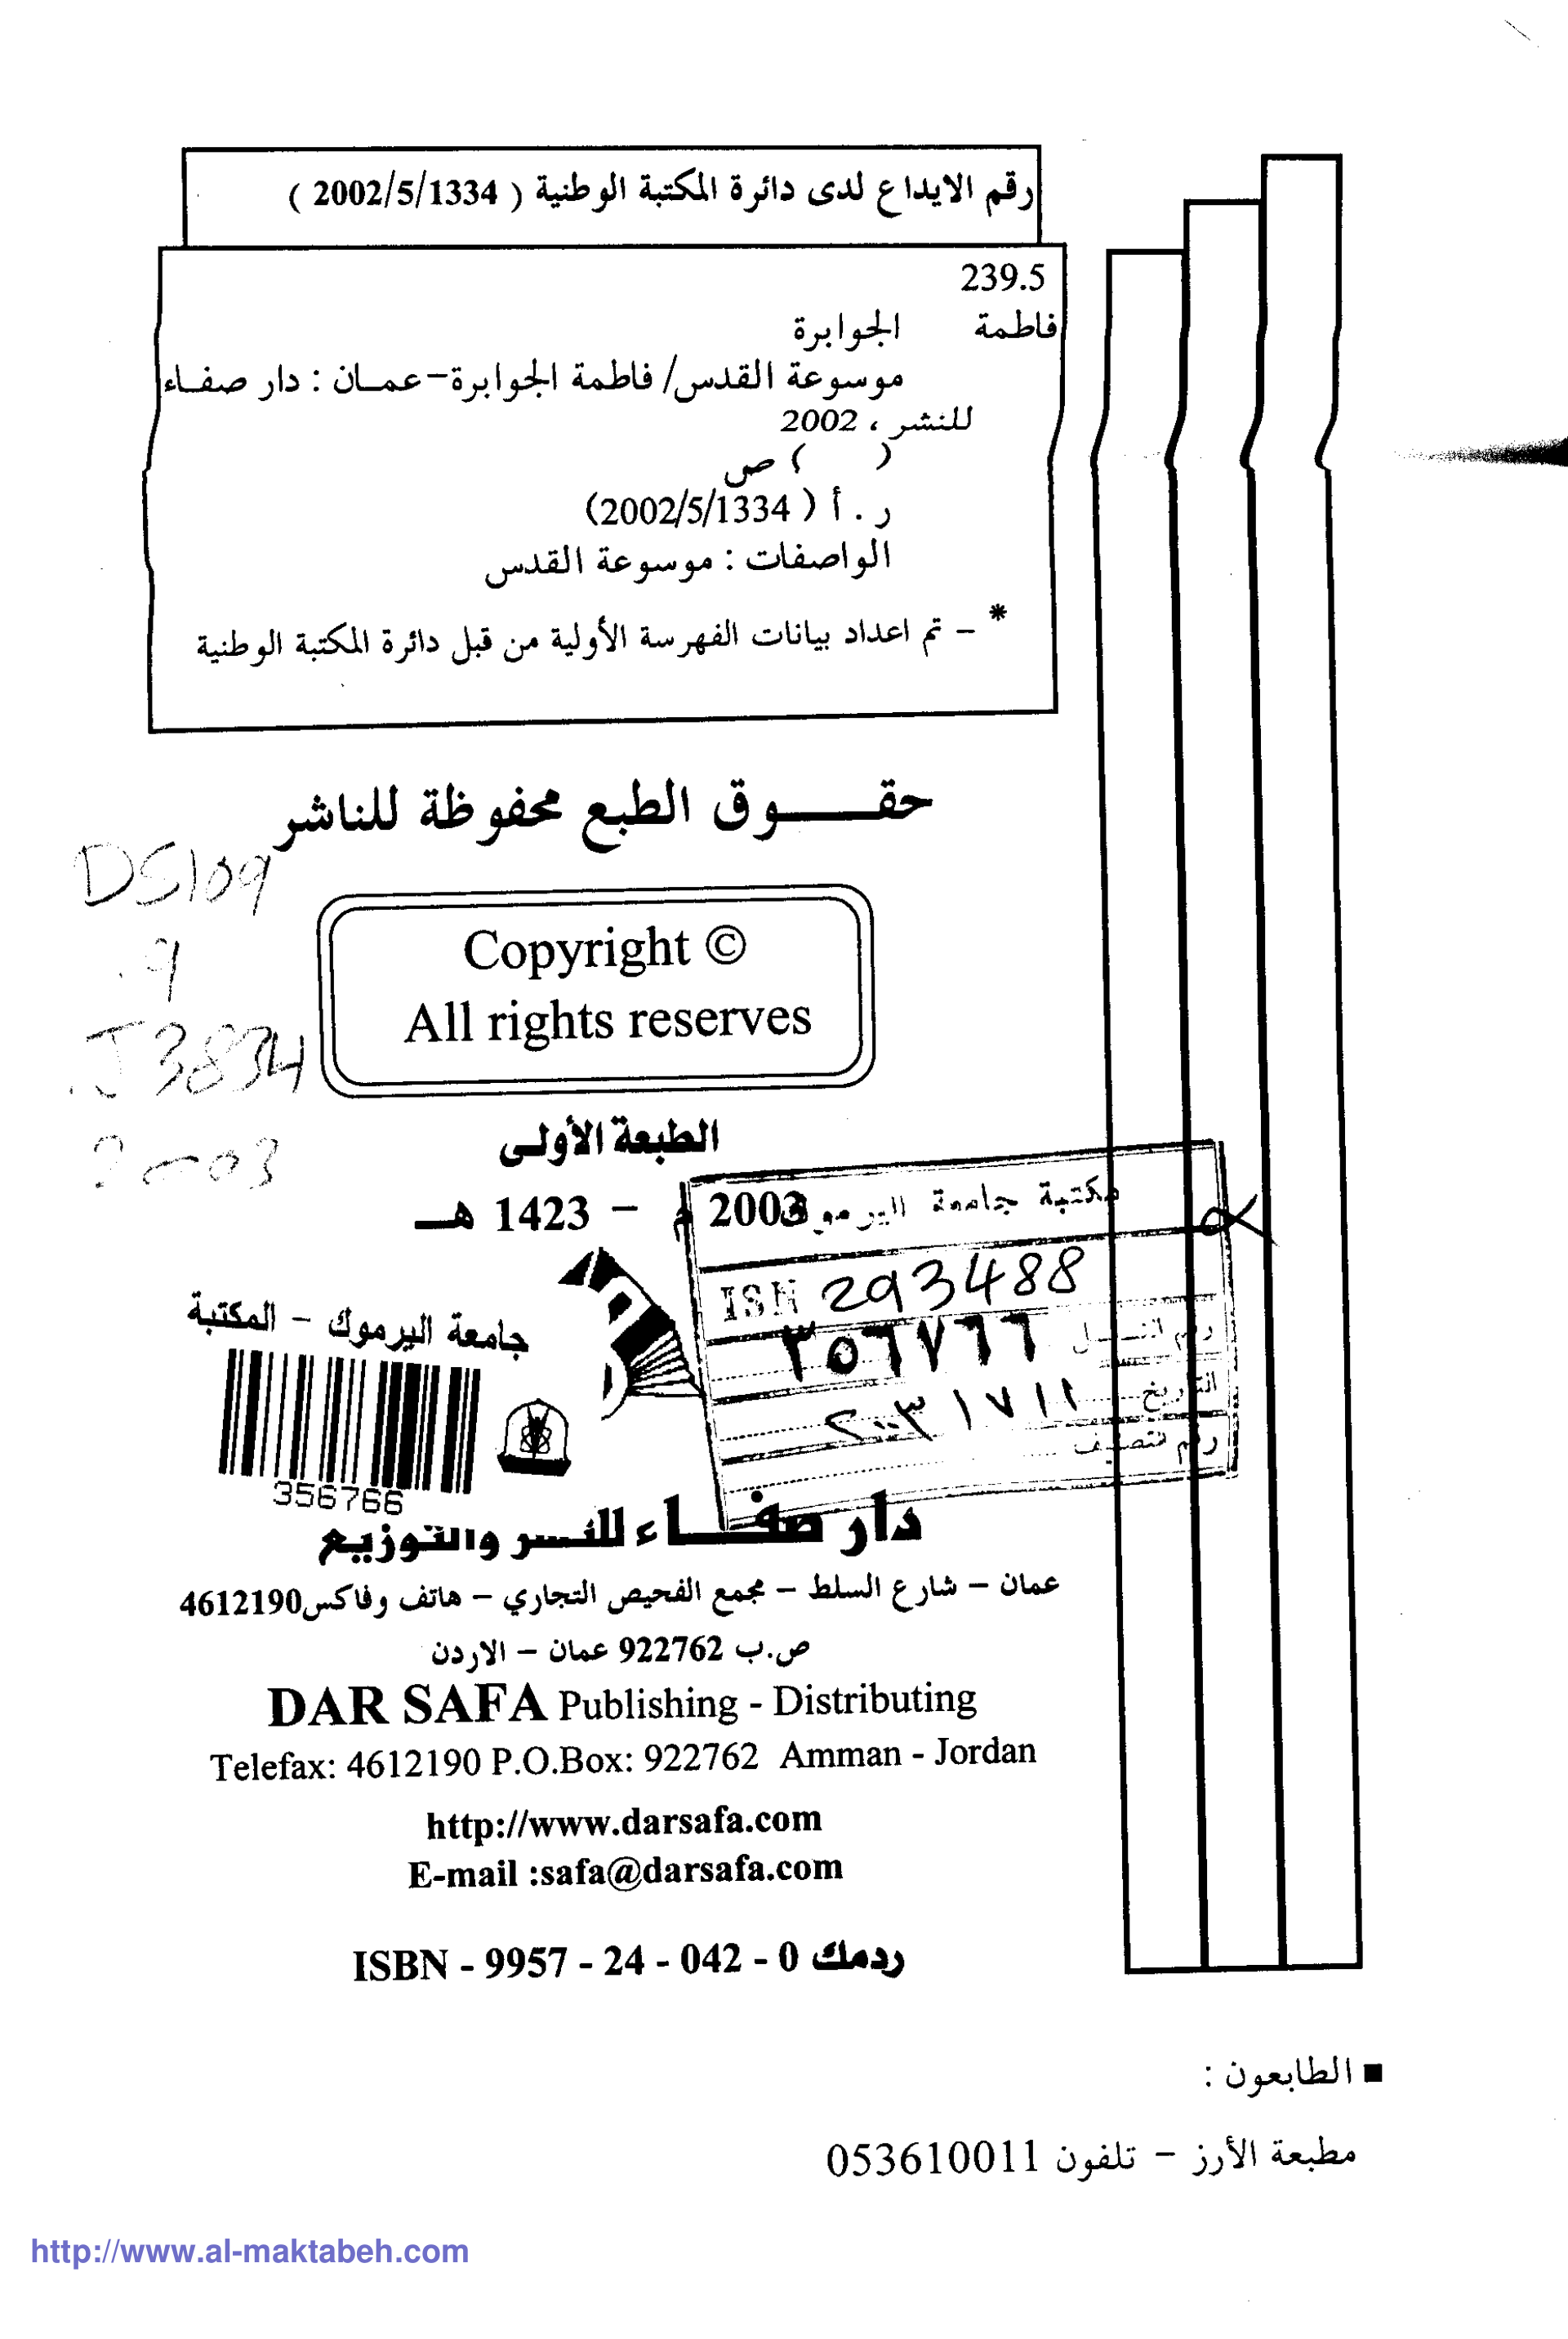 رقم الايداع لدى دائرة المكتبة الوطنية ( 2002/5/1334 )
239.5
فاطمة الجوابرة
موسوعة القدس/ فاطمة الجوابرة-عمـان : دار صفـاء
للنشر ، 2002
( ) ص
ر . أ ( 2002/5/1334)
الواصفات : موسوعة القدس
* - تم اعداد بيانات الفهرسة الأولية من قبل دائرة المكتبة الوطنية
حقـــــوق الطبع محفوظة للناشر
DS109
.9
.J3834
2003
Copyright ©
All rights reserves
الطبعة الأولـى
2003 م - 1423 هــ
مكتبة جامعة اليرموك
ISN 293488
٣٥٦٧٦٦
التاريخ
رقم التصنيف
جامعة اليرموك - المكتبة
356766
دار صفــاء للنــشر والتوزيع
عمان - شارع السلط - مجمع الفحيص التجاري - هاتف وفاكس4612190
ص.ب 922762 عمان - الاردن
DAR SAFA Publishing - Distributing
Telefax: 4612190 P.O.Box: 922762 Amman - Jordan
http://www.darsafa.com
E-mail :safa@darsafa.com
ردمك ISBN - 9957 - 24 - 042 - 0
■ الطابعون :
مطبعة الأرز - تلفون 053610011
http://www.al-maktabeh.com